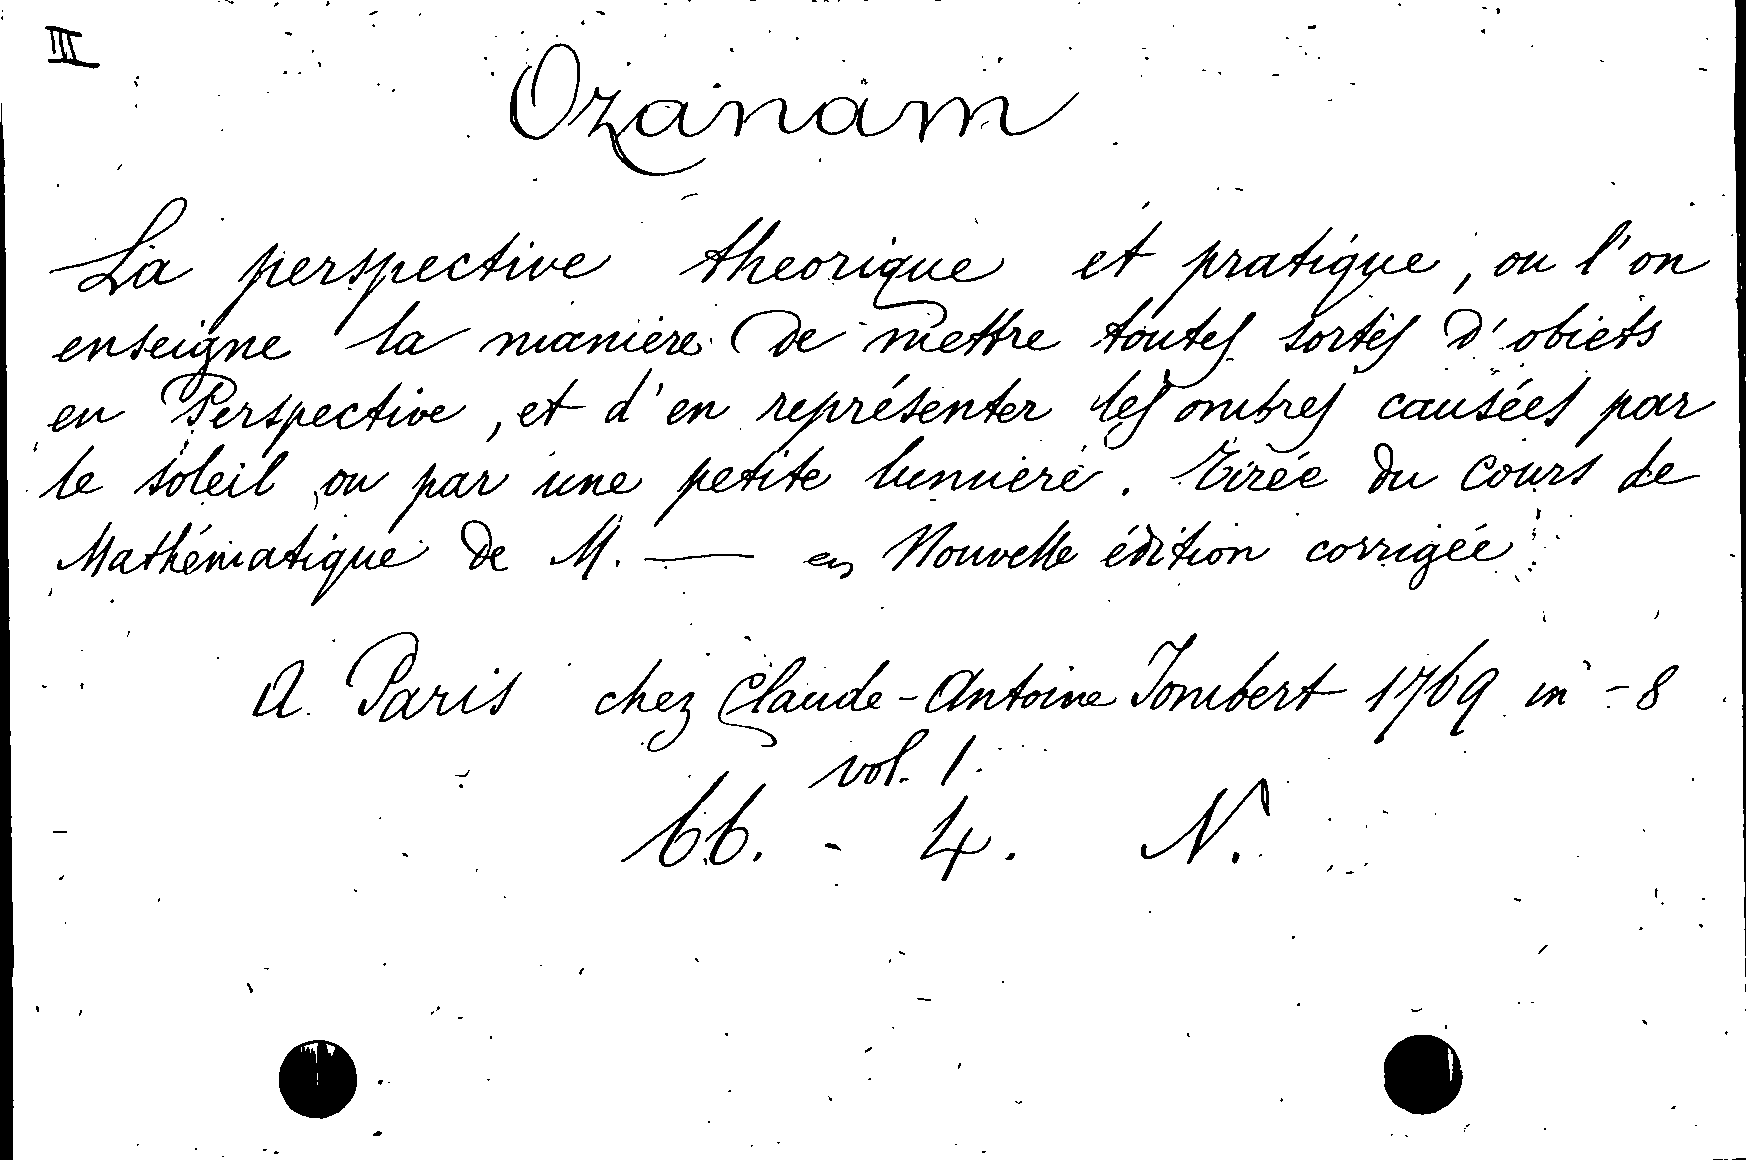 III
Ozanam
La perspective theorique et pratique, ou l'on
enseigne la maniere de mettre toutes sortes d'obiets
en Perspective, et d'en représenter les ombres causées par
le soleil ou par une petite lumiere. Tirée du Cours de
Mathématique de M. — en Nouvelle édition corrigée
A Paris chez Claude-Antoine Jombert 1769 in-8
vol. 1.
66. - 4. N.